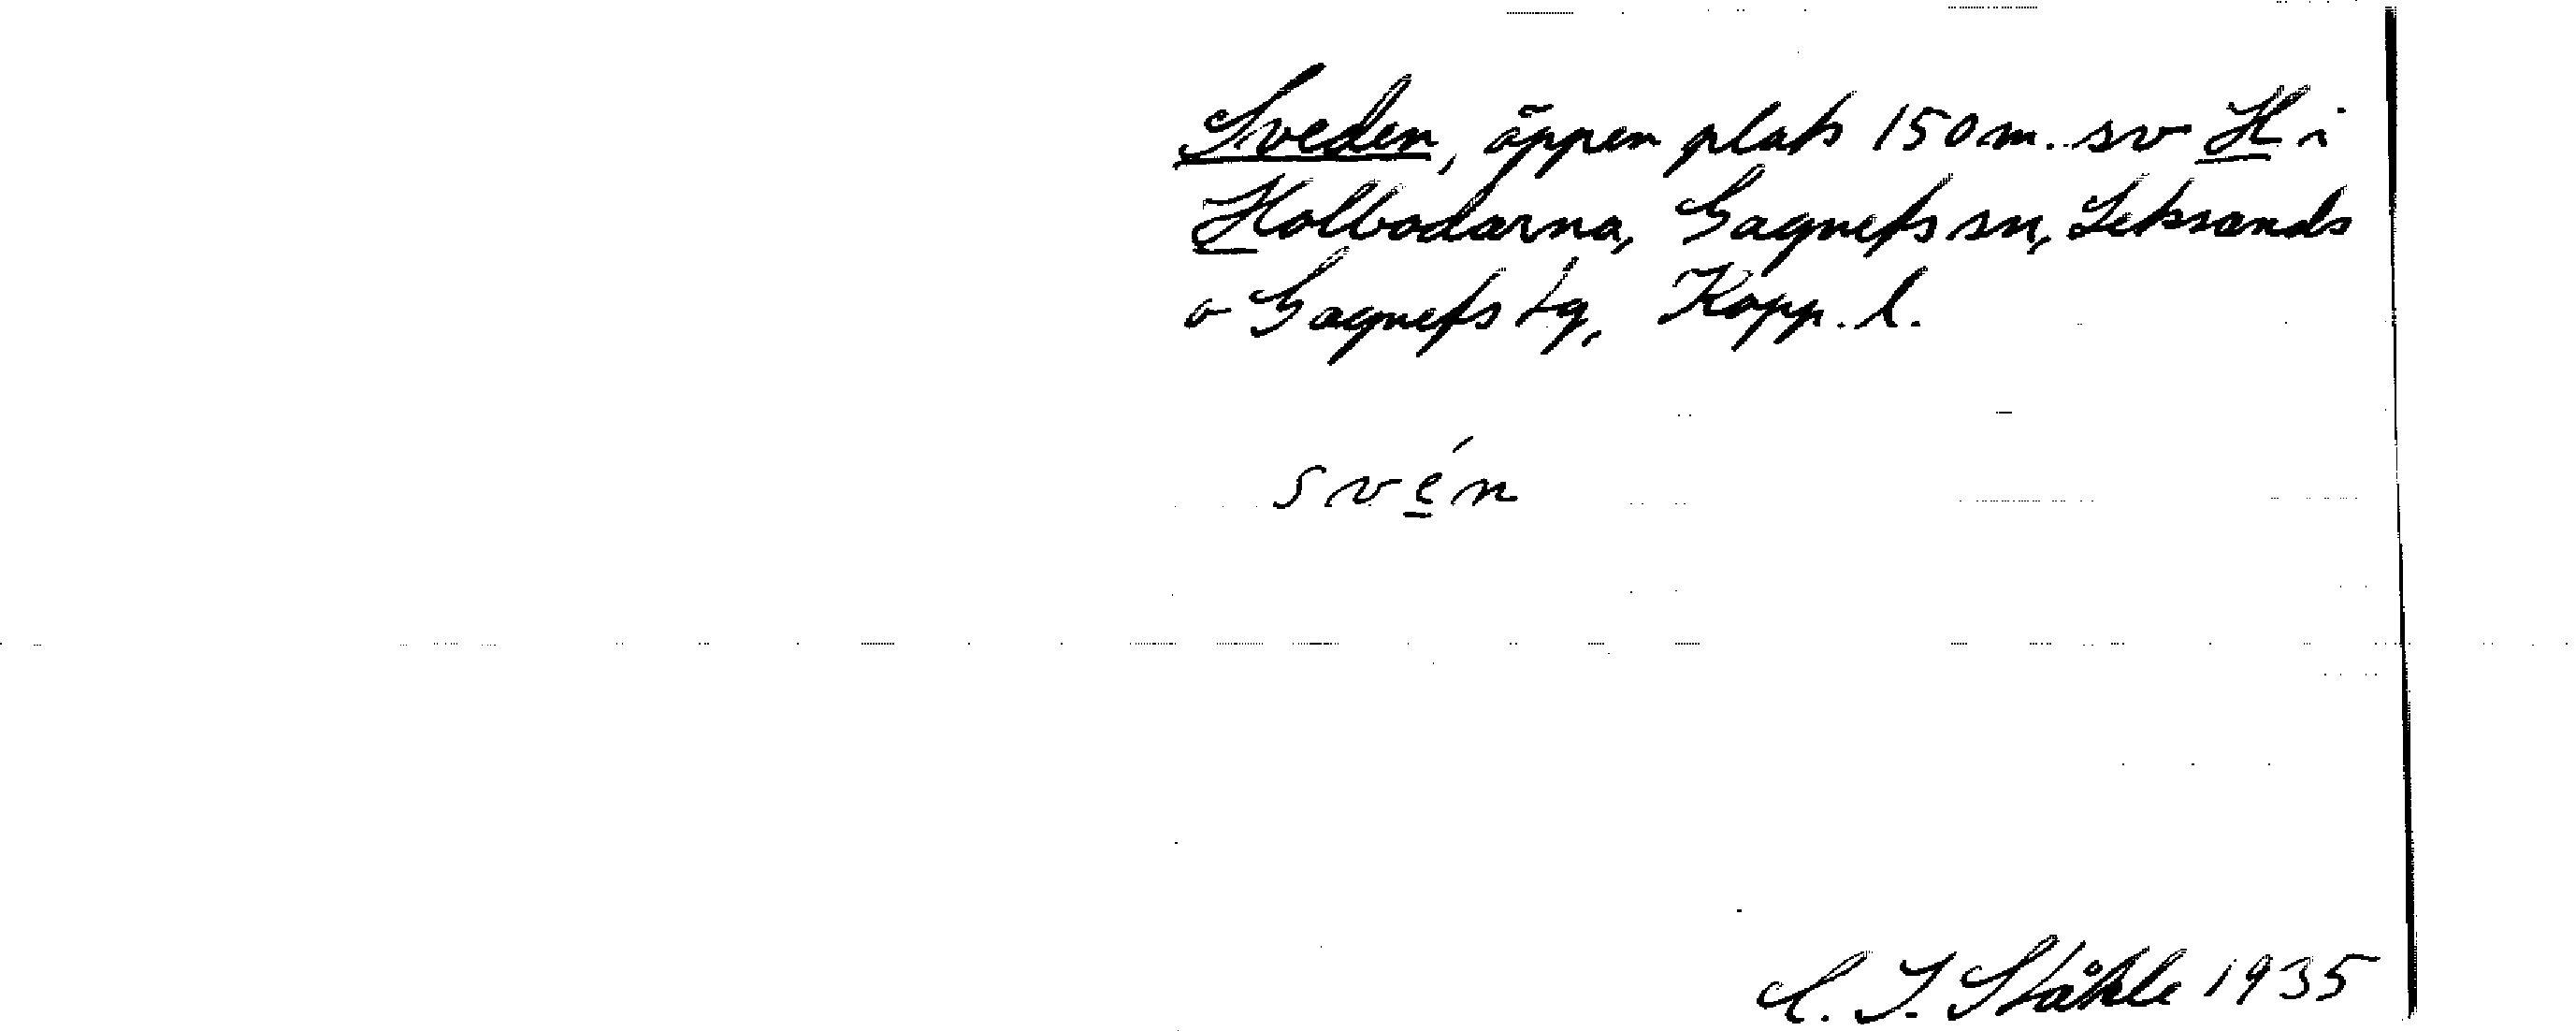 Sveden, öppen plats 150 m. sv H i
Holbodarna, Gagnefs sn, Leksands
o Gagnefs tg, Kopp. l.
svén
C. I. Ståhle 1935